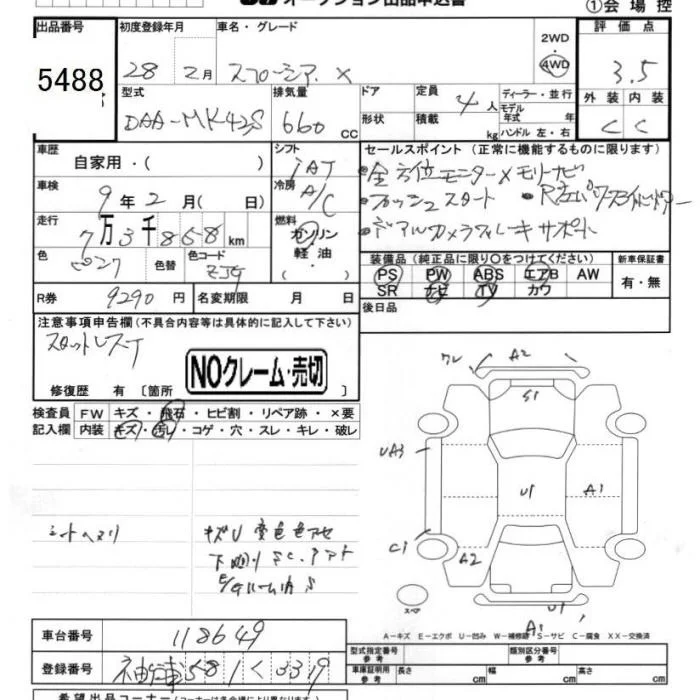 オークション出品申込書
①会場控
出品番号 初度登録年月 車名・グレード 評価点
5488 28 2月 スペーシア X 2WD 4WD 3.5
型式 排気量 ドア 定員 4人 ディーラー・並行
モデル年式 年式
外装 内装
DAA-MK42S 660 cc 形状 積載 kg ハンドル 左・右 C C
車歴 シフト セールスポイント(正常に機能するものに限ります)
自家用・( ) IAT ・全方位モニターメモリーナビ
車検 9年2月(日) 冷房 A/C ・プッシュスタート
走行 7万3千858km 燃料 ガソリン 軽油・ ・デュアルカメラブレーキサポート
色 ピンク 色替 色コード 装備品(純正品に限り○をつけてください) 新車保証書
PS PW ABS エアB AW 有・無
SR ナビ TV カワ
R券 9290円 名変期限 月 日 後日品
注意事項申告欄(不具合内容等は具体的に記入して下さい)
スタットレスT
NOクレーム・売切
修復歴 有 〔箇所 〕
検査員 FW キズ・飛石・ヒビ割・リペア跡・×要
記入欄 内装 キズ・汚レ・コゲ・穴・スレ・キレ・破レ
ワレ A2
S1
UA3
U1 A1
C1 A2
シートヘタリ キズU 変色色アセ
スペア
U1
A1
A-キズ E-エクボ U-凹み W-補修跡 S-サビ C-腐食 XX-交換済
車台番号 118649
型式指定番号 参考 類別区分番号 参考
登録番号 581 く 3319
車庫証明用 参考 長さ cm 幅 cm 高さ cm
希望出品コーナー